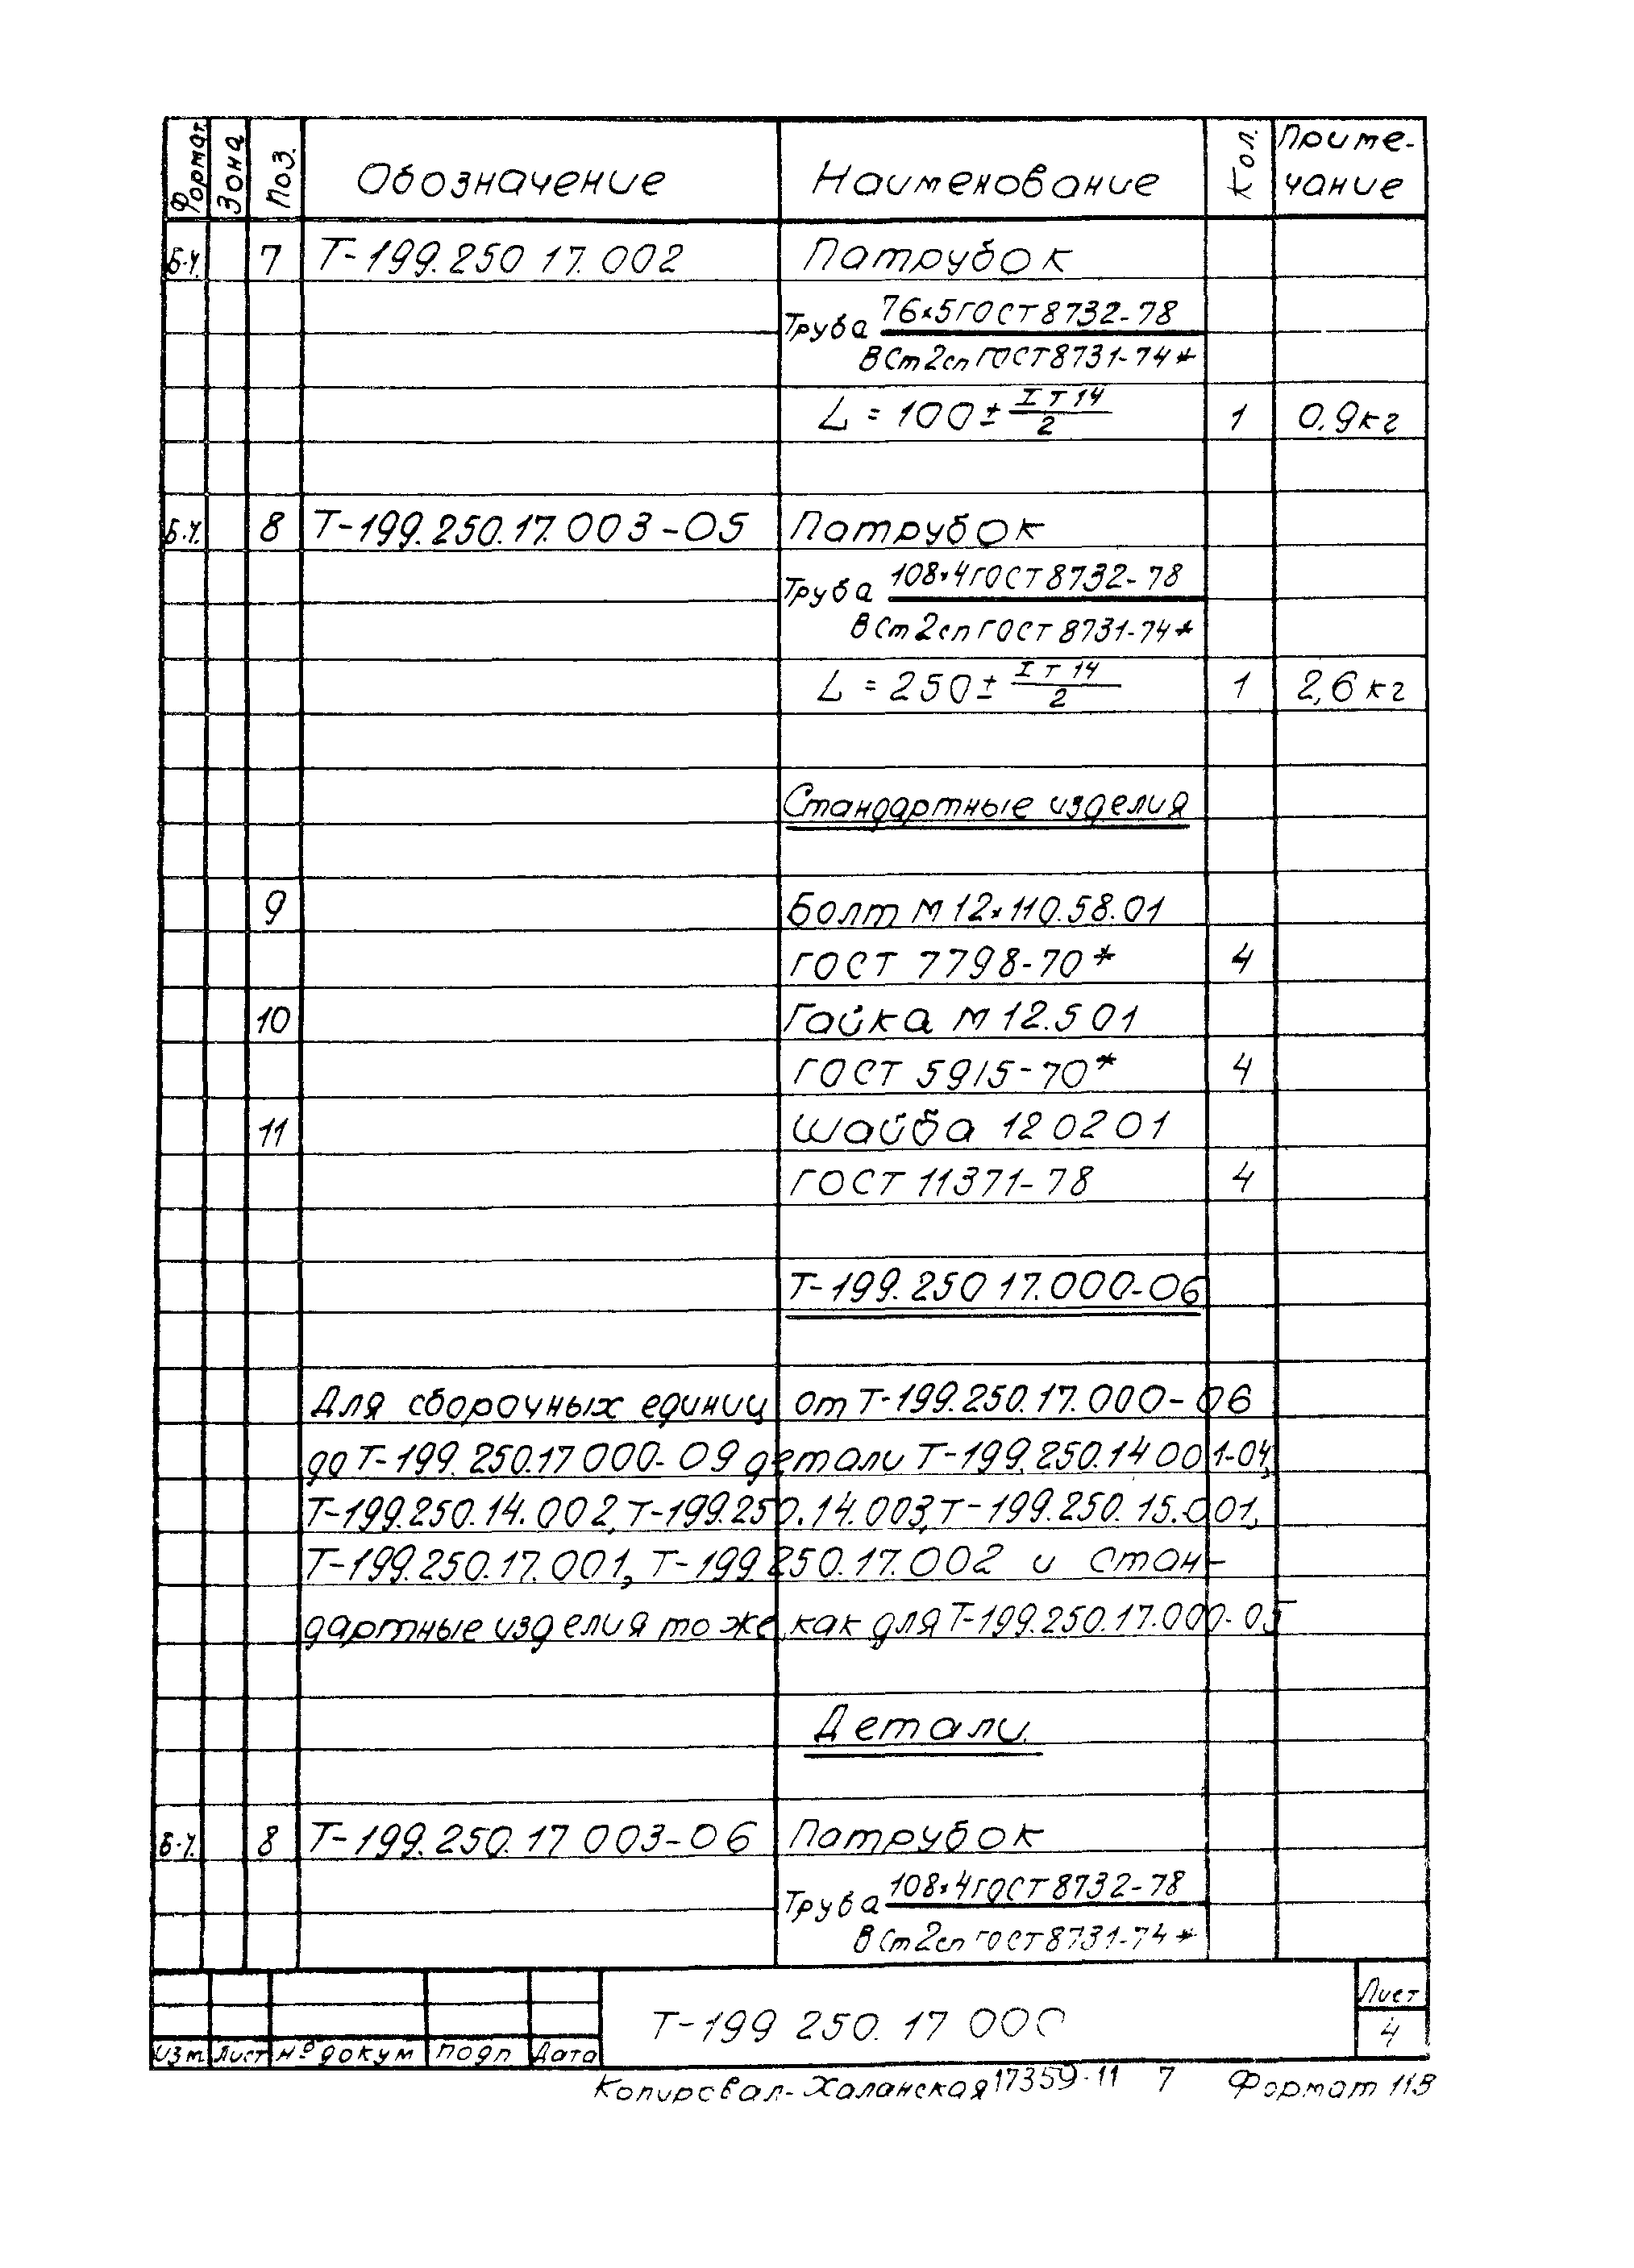 Формат Зона Поз. Обозначение Наименование Кол. Приме-
чание
Б.Ч. 7 Т-199.250 17.002 Патрубок
Труба 76×5 ГОСТ 8732-78
ВСт2сп ГОСТ 8731-74*
L = 100 ± IT14/2 1 0.9кг
Б.Ч. 8 Т-199.250.17.003-05 Патрубок
Труба 108×4 ГОСТ 8732-78
ВСт2сп ГОСТ 8731-74*
L = 250 ± IT14/2 1 2,6кг
Стандартные изделия
9 Болт М12×110.58.01
ГОСТ 7798-70* 4
10 Гайка М12.5 01
ГОСТ 5915-70* 4
11 Шайба 12 02 01
ГОСТ 11371-78 4
Т-199.250 17.000-06
Для сборочных единиц от Т-199.250.17.000-06
до Т-199.250.17 000-09 детали Т-199.250.14 001-04,
Т-199.250.14.002, Т-199.250.14.003, Т-199.250.15.001,
Т-199.250.17.001, Т-199.250.17.002 и стан-
дартные изделия то же, как для Т-199.250.17.000-05
Детали
Б.Ч. 8 Т-199.250.17 003-06 Патрубок
Труба 108×4 ГОСТ 8732-78
ВСт2сп ГОСТ 8731-74*
Т-199 250.17 000
Лист
4
Изм Лист № докум Подп Дата
Копировал-Халанская 17359-11 7 Формат 11В